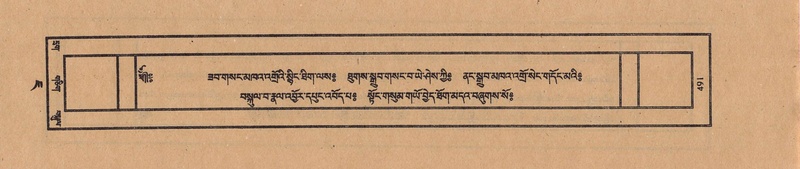 ཟབ་གསང་མཁའ་འགྲོའི་སྙིང་ཐིག་ལས༔ ཐུགས་སྒྲུབ་གསང་བ་ཡེ་ཤེས་ཀྱི༔ ནང་སྒྲུབ་མཁའ་འགྲོ་སེང་གདོང་མའི༔
བསྐུལ་བ་རྣལ་འབྱོར་དཔུང་འབོད་པ༔ སྟོང་གསུམ་གཡོ་བྱེད་ཐོག་མདའ་བཞུགས་སོ༔
491